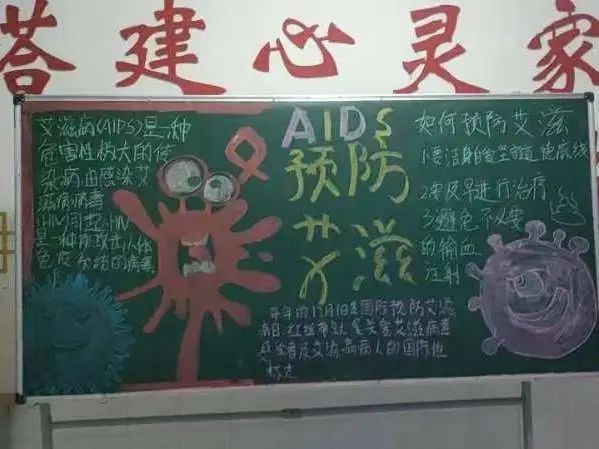 搭建心灵家
艾滋病(AIDS)是一种
危害性极大的传
染病由感染艾
滋病病毒
(HIV)引起HIV
是一种能攻击人体
免疫系统的病毒
AIDS
预防
艾滋
每年的12月1日是国际预防艾滋
病日.红丝带
艾滋病人的国际性
标志
如何预防艾滋
1要洁身自爱坚守道德底线
2要及早进行治疗
3避免不必要
的输血
注射